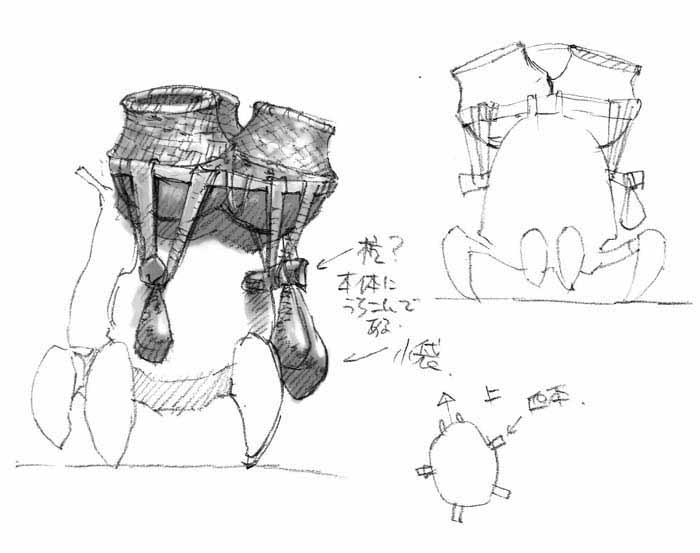 杭?
本体に
うちこんで
ある.
小袋.
上
四本.